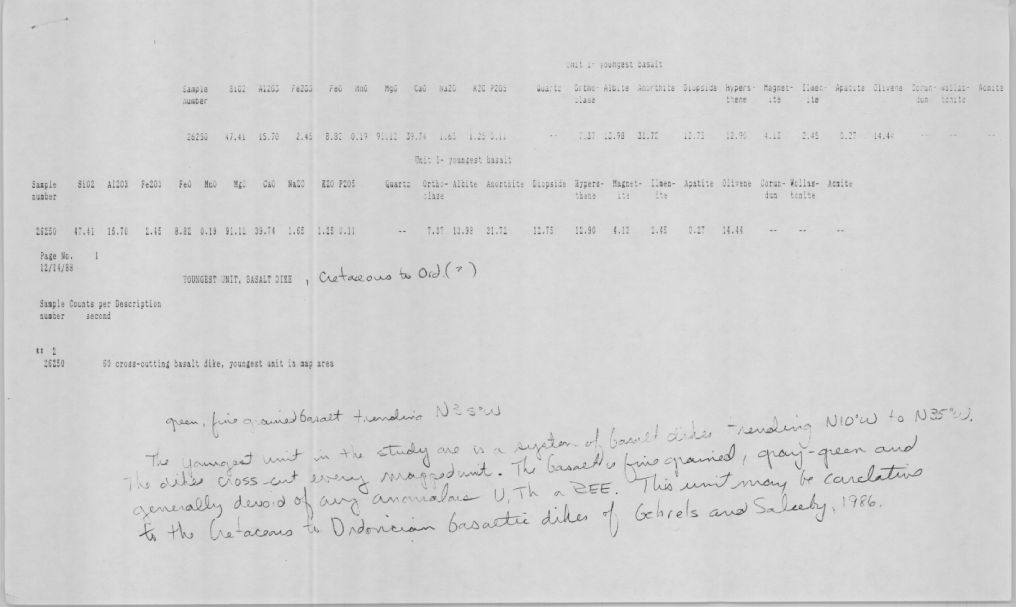 Unit 1- youngest basalt
Sample SiO2 Al2O3 Fe2O3 FeO MnO MgO CaO Na2O K2O P2O5 Quartz Ortho- Albite Anorthite Diopside Hypers- Magnet- Ilmen- Apatite Olivene Corun- Wollas- Acmite
number clase thene ite ite dum tonite
26250 47.41 15.70 2.45 8.82 0.19 91.12 39.74 1.65 1.25 0.11 -- 7.37 13.98 31.72 12.75 12.90 4.13 2.45 0.27 14.44 -- -- --
Unit 1- youngest basalt
Sample SiO2 Al2O3 Fe2O3 FeO MnO MgO CaO Na2O K2O P2O5 Quartz Ortho- Albite Anorthite Diopside Hypers- Magnet- Ilmen- Apatite Olivene Corun- Wollas- Acmite
number clase thene ite ite dum tonite
26250 47.41 15.70 2.45 8.82 0.19 91.12 39.74 1.65 1.25 0.11 -- 7.37 13.98 31.72 12.75 12.90 4.13 2.45 0.27 14.44 -- -- --
Page No. 1
12/14/88
YOUNGEST UNIT, BASALT DIKE , Cretaceous to Ord.(?)
Sample Counts per Description
number second
** 2
26250 60 cross-cutting basalt dike, youngest unit in map area
green, fine grained basalt trending N35°W
The youngest unit in the study are is a system of basalt dikes trending N10°W to N35°W.
The dikes cross-cut every mapped unit. The basalt is fine grained, gray-green and
generally devoid of any anomalous U, Th or REE. This unit may be correlative
to the Cretaceous to Ordovician basaltic dikes of Gehrels and Saleeby, 1986.